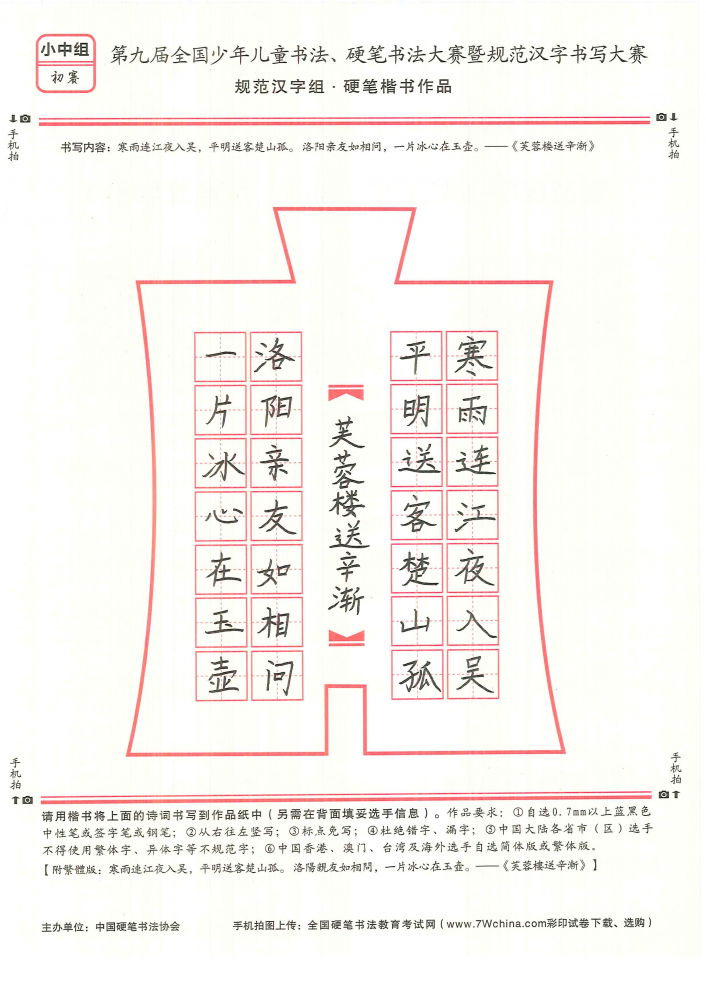 小中组
初赛
第九届全国少年儿童书法、硬笔书法大赛暨规范汉字书写大赛
规范汉字组·硬笔楷书作品
手机拍
手机拍
书写内容：寒雨连江夜入吴，平明送客楚山孤。洛阳亲友如相问，一片冰心在玉壶。——《芙蓉楼送辛渐》
寒雨连江夜入吴
平明送客楚山孤
芙蓉楼送辛渐
洛阳亲友如相问
一片冰心在玉壶
手机拍
手机拍
请用楷书将上面的诗词书写到作品纸中（另需在背面填妥选手信息）。作品要求：①自选0.7mm以上蓝黑色
中性笔或签字笔或钢笔；②从右往左竖写；③标点免写；④杜绝错字、漏字；⑤中国大陆各省市（区）选手
不得使用繁体字、异体字等不规范字；⑥中国香港、澳门、台湾及海外选手自选简体版或繁体版。
【附繁體版：寒雨连江夜入吴，平明送客楚山孤。洛陽親友如相問，一片冰心在玉壶。——《芙蓉楼送辛渐》】
主办单位：中国硬笔书法协会
手机拍图上传：全国硬笔书法教育考试网（www.7Wchina.com彩印试卷下载、选购）